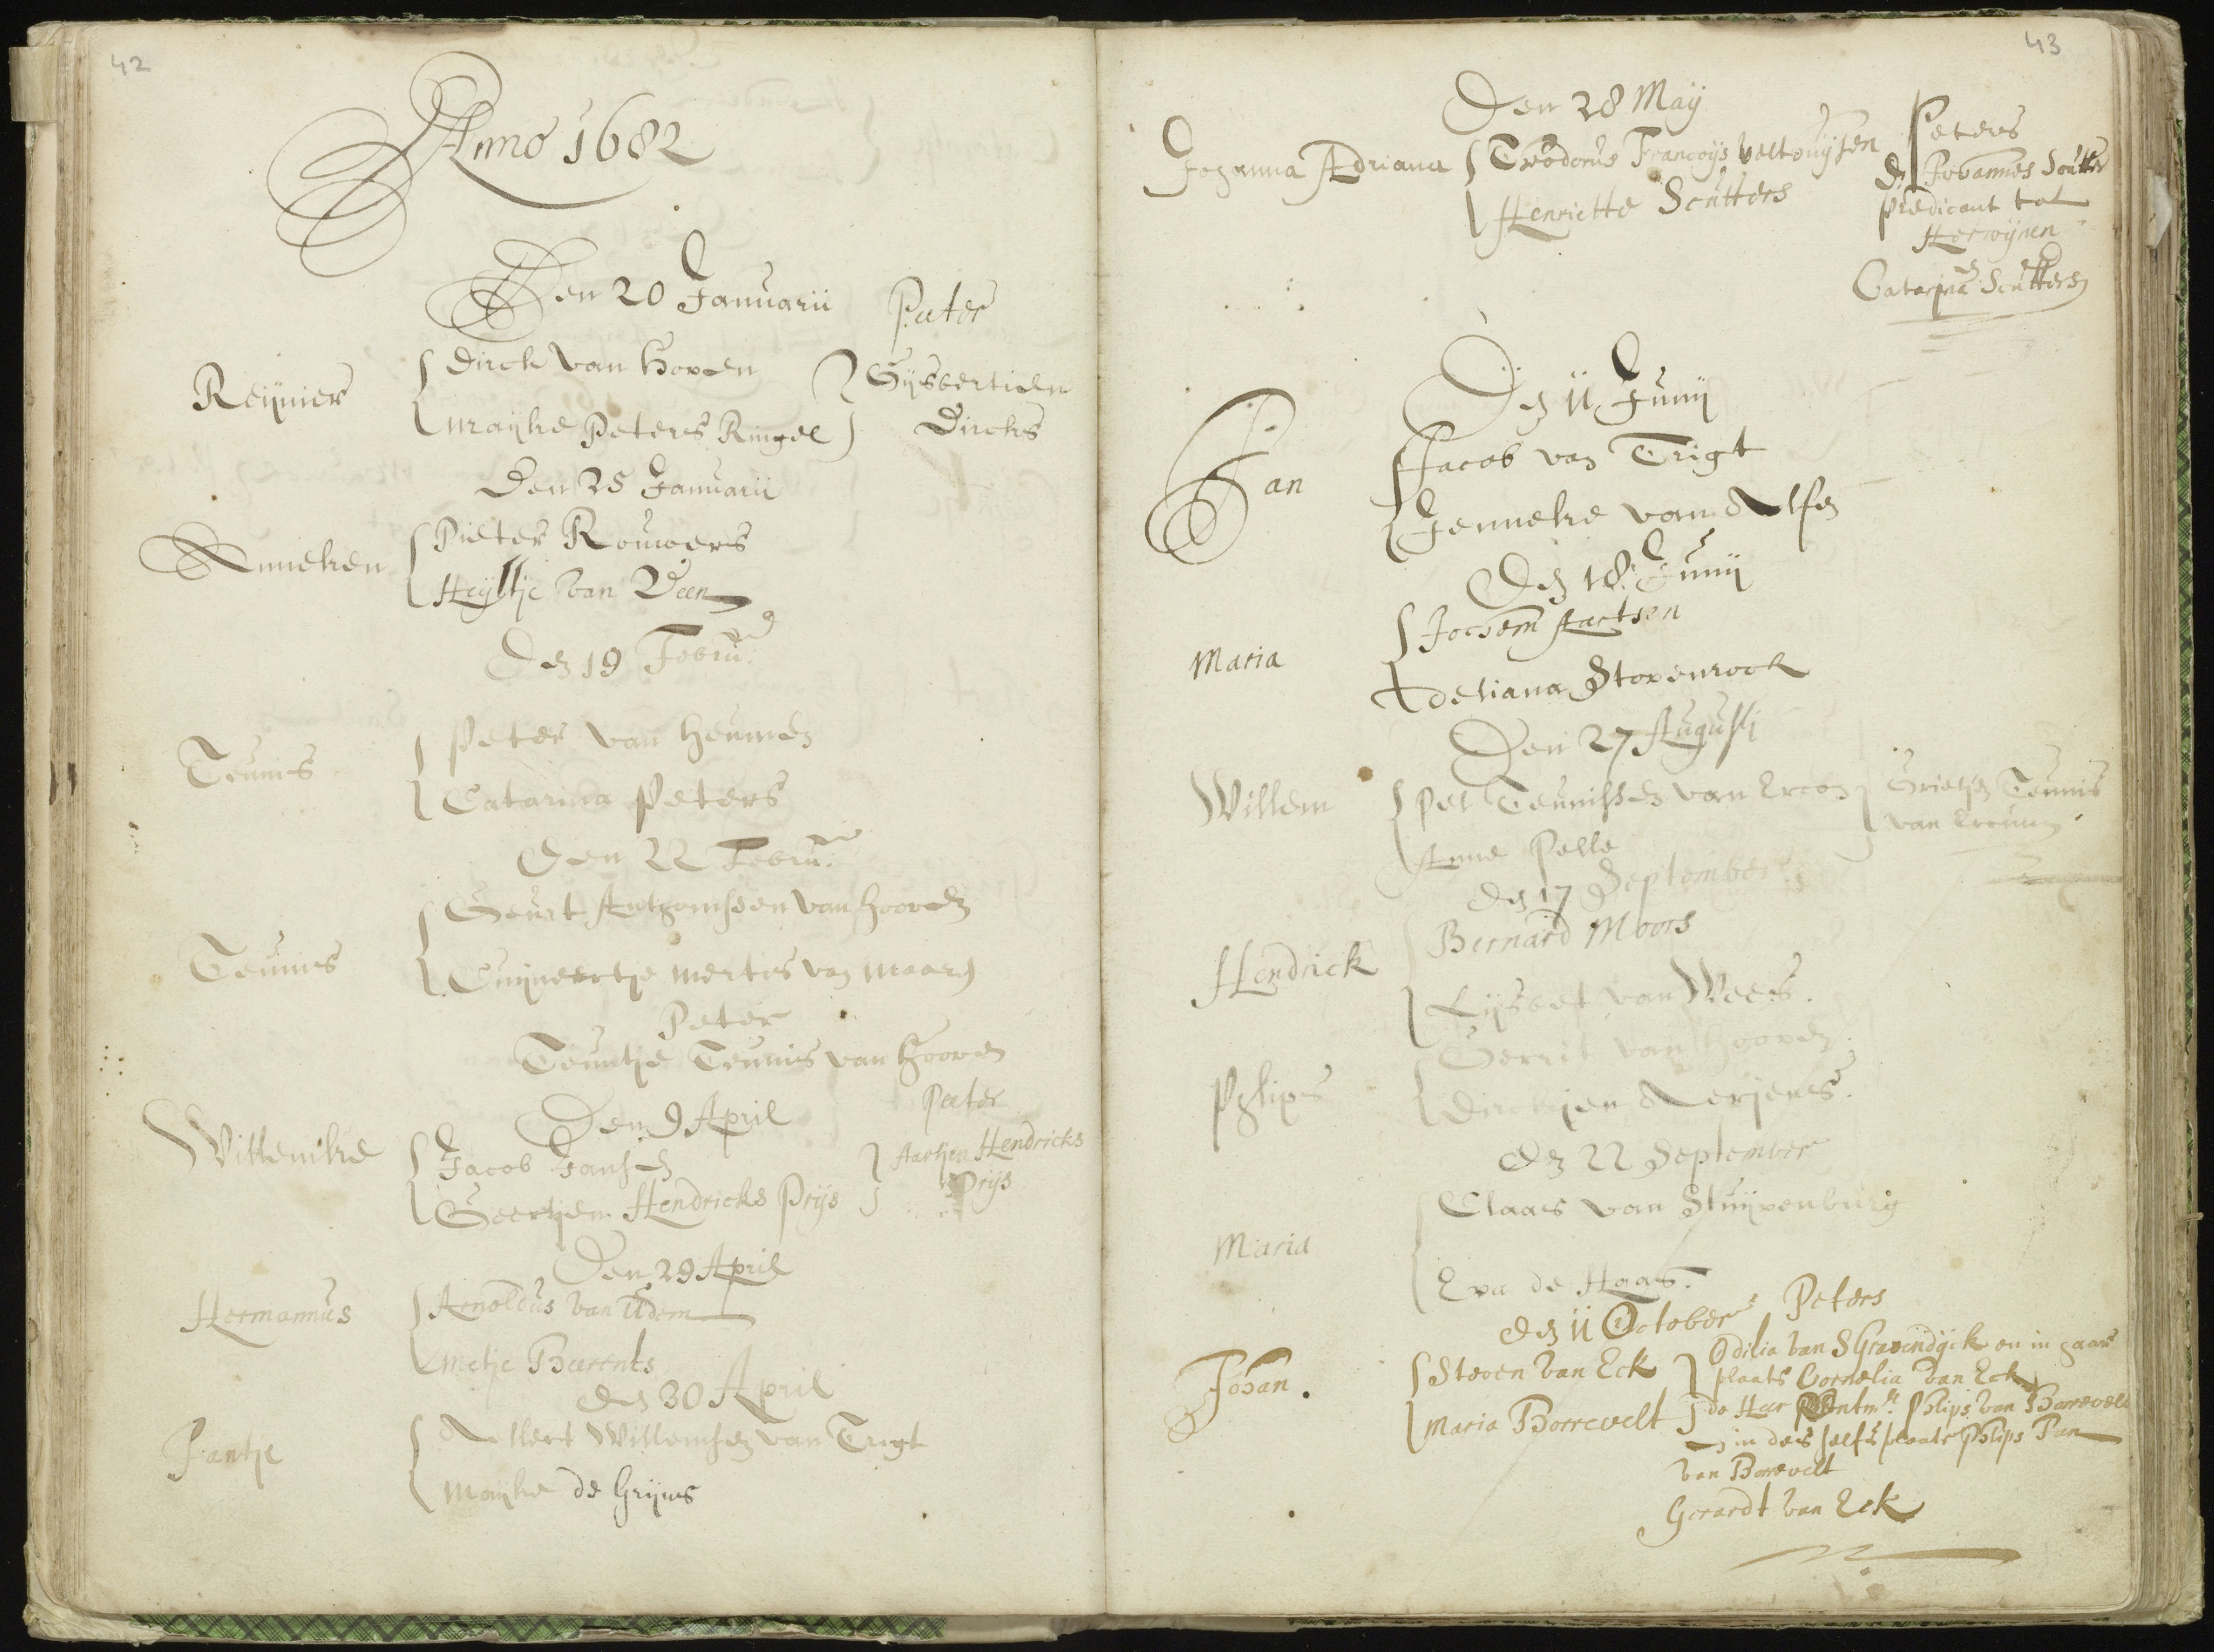 42
Anno 1682
Den 20 Januarii
Peter
Reijnier
Dirck van Hoven
Maijke Peters Ringel
Gijsbertien
Dircks
Den 25 Januarii
Anneken
Pieter Rouwers
Heyltje van Veen
Den 19 Febru:
Teunis
Peter van Heumen
Catarina Peters
Den 22 Febru:
Teunis
Geurt Anthonissen van Hooven
Cuijneertje Mertes van Maaren
Peter
Teuntje Teunis van Hooven
Den 9 April
Peter
Willemke
Jacob Jansen
Geertjen Hendricks Prijs
Aartjen Hendricks
Prijs
Den 29 April
Hermannus
Arnoldus van Udem
Metje Beerents
Den 30 April
Jantje
Allert Willemsen van Trigt
Maijke de Grijns
43
Den 28 Maij
Johanna Adriana
Theodorus Francoijs Velthuijsen
Henriette Scutters
Peters
Ds Johannes Scutter
predicant tot
Herwijnen
Catarina Scutters
Den 11 Junij
Jan
Jacob van Trigt
Jenneke van Alfen
Den 18 Junij
Maria
Jochem Aartsen
Adriana Stovenrock
Den 27 Augusti
Willem
Pet Teunissen van Ercom
Anne Pelle
Grietjen Teunis
van
Den 17 September
Hendrick
Bernard Moors
Lijsbet van Wees.
Philips
Gerrit van Hooven.
Dirckjen Aerjens.
Den 22 September
Maria
Claas van Stuijvenburg
Eva de Haas.
Den 11 October
Peters
Johan.
Steven van Eck
Maria Borrevelt
Odilia van SGravendijck en in haar
plaats Cornelia van Eck
de Heer Rentmr. Philips van Borrevelt
en in des selfs plaats Philips Pan
van Borrevelt
Gerardt van Eck